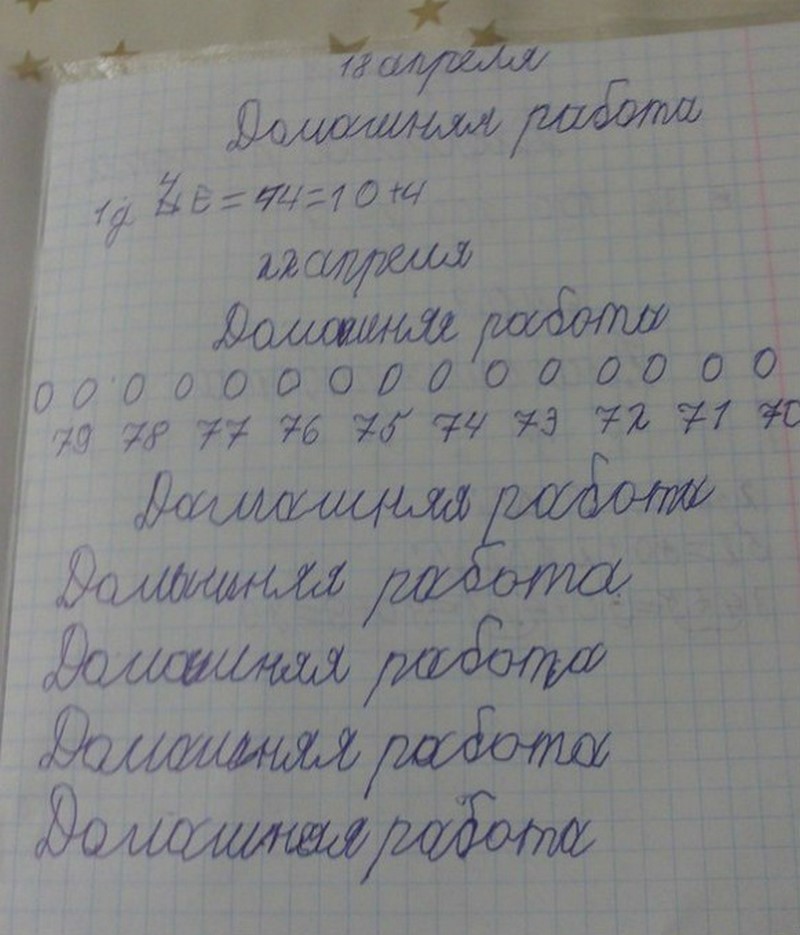 18 апреля
Домашняя работа
1д 4Е = 14 = 10+4
22 апреля
Домашняя работа
0 0 0 0 0 0 0 0 0 0 0 0 0 0 0
79 78 77 76 75 74 73 72 71 70
Дамашняя работа
Домашняя работа
Домашняя работа
Домашняя работа
Домашняя работа